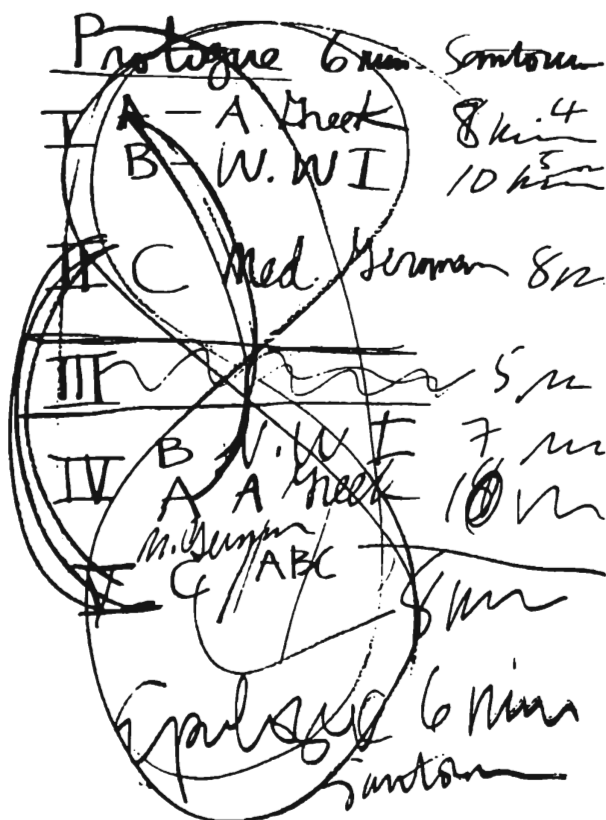 Prologue 6 min. Santouri
I A – A. Greek 8 min 4
B – W. W I 10 min 5
II C Med. German 8 m
III 5 m
B W. W I 7 m
IV A A Greek 10 m
M. German
V C ABC 8 min
Epilogue 6 min
Santouri